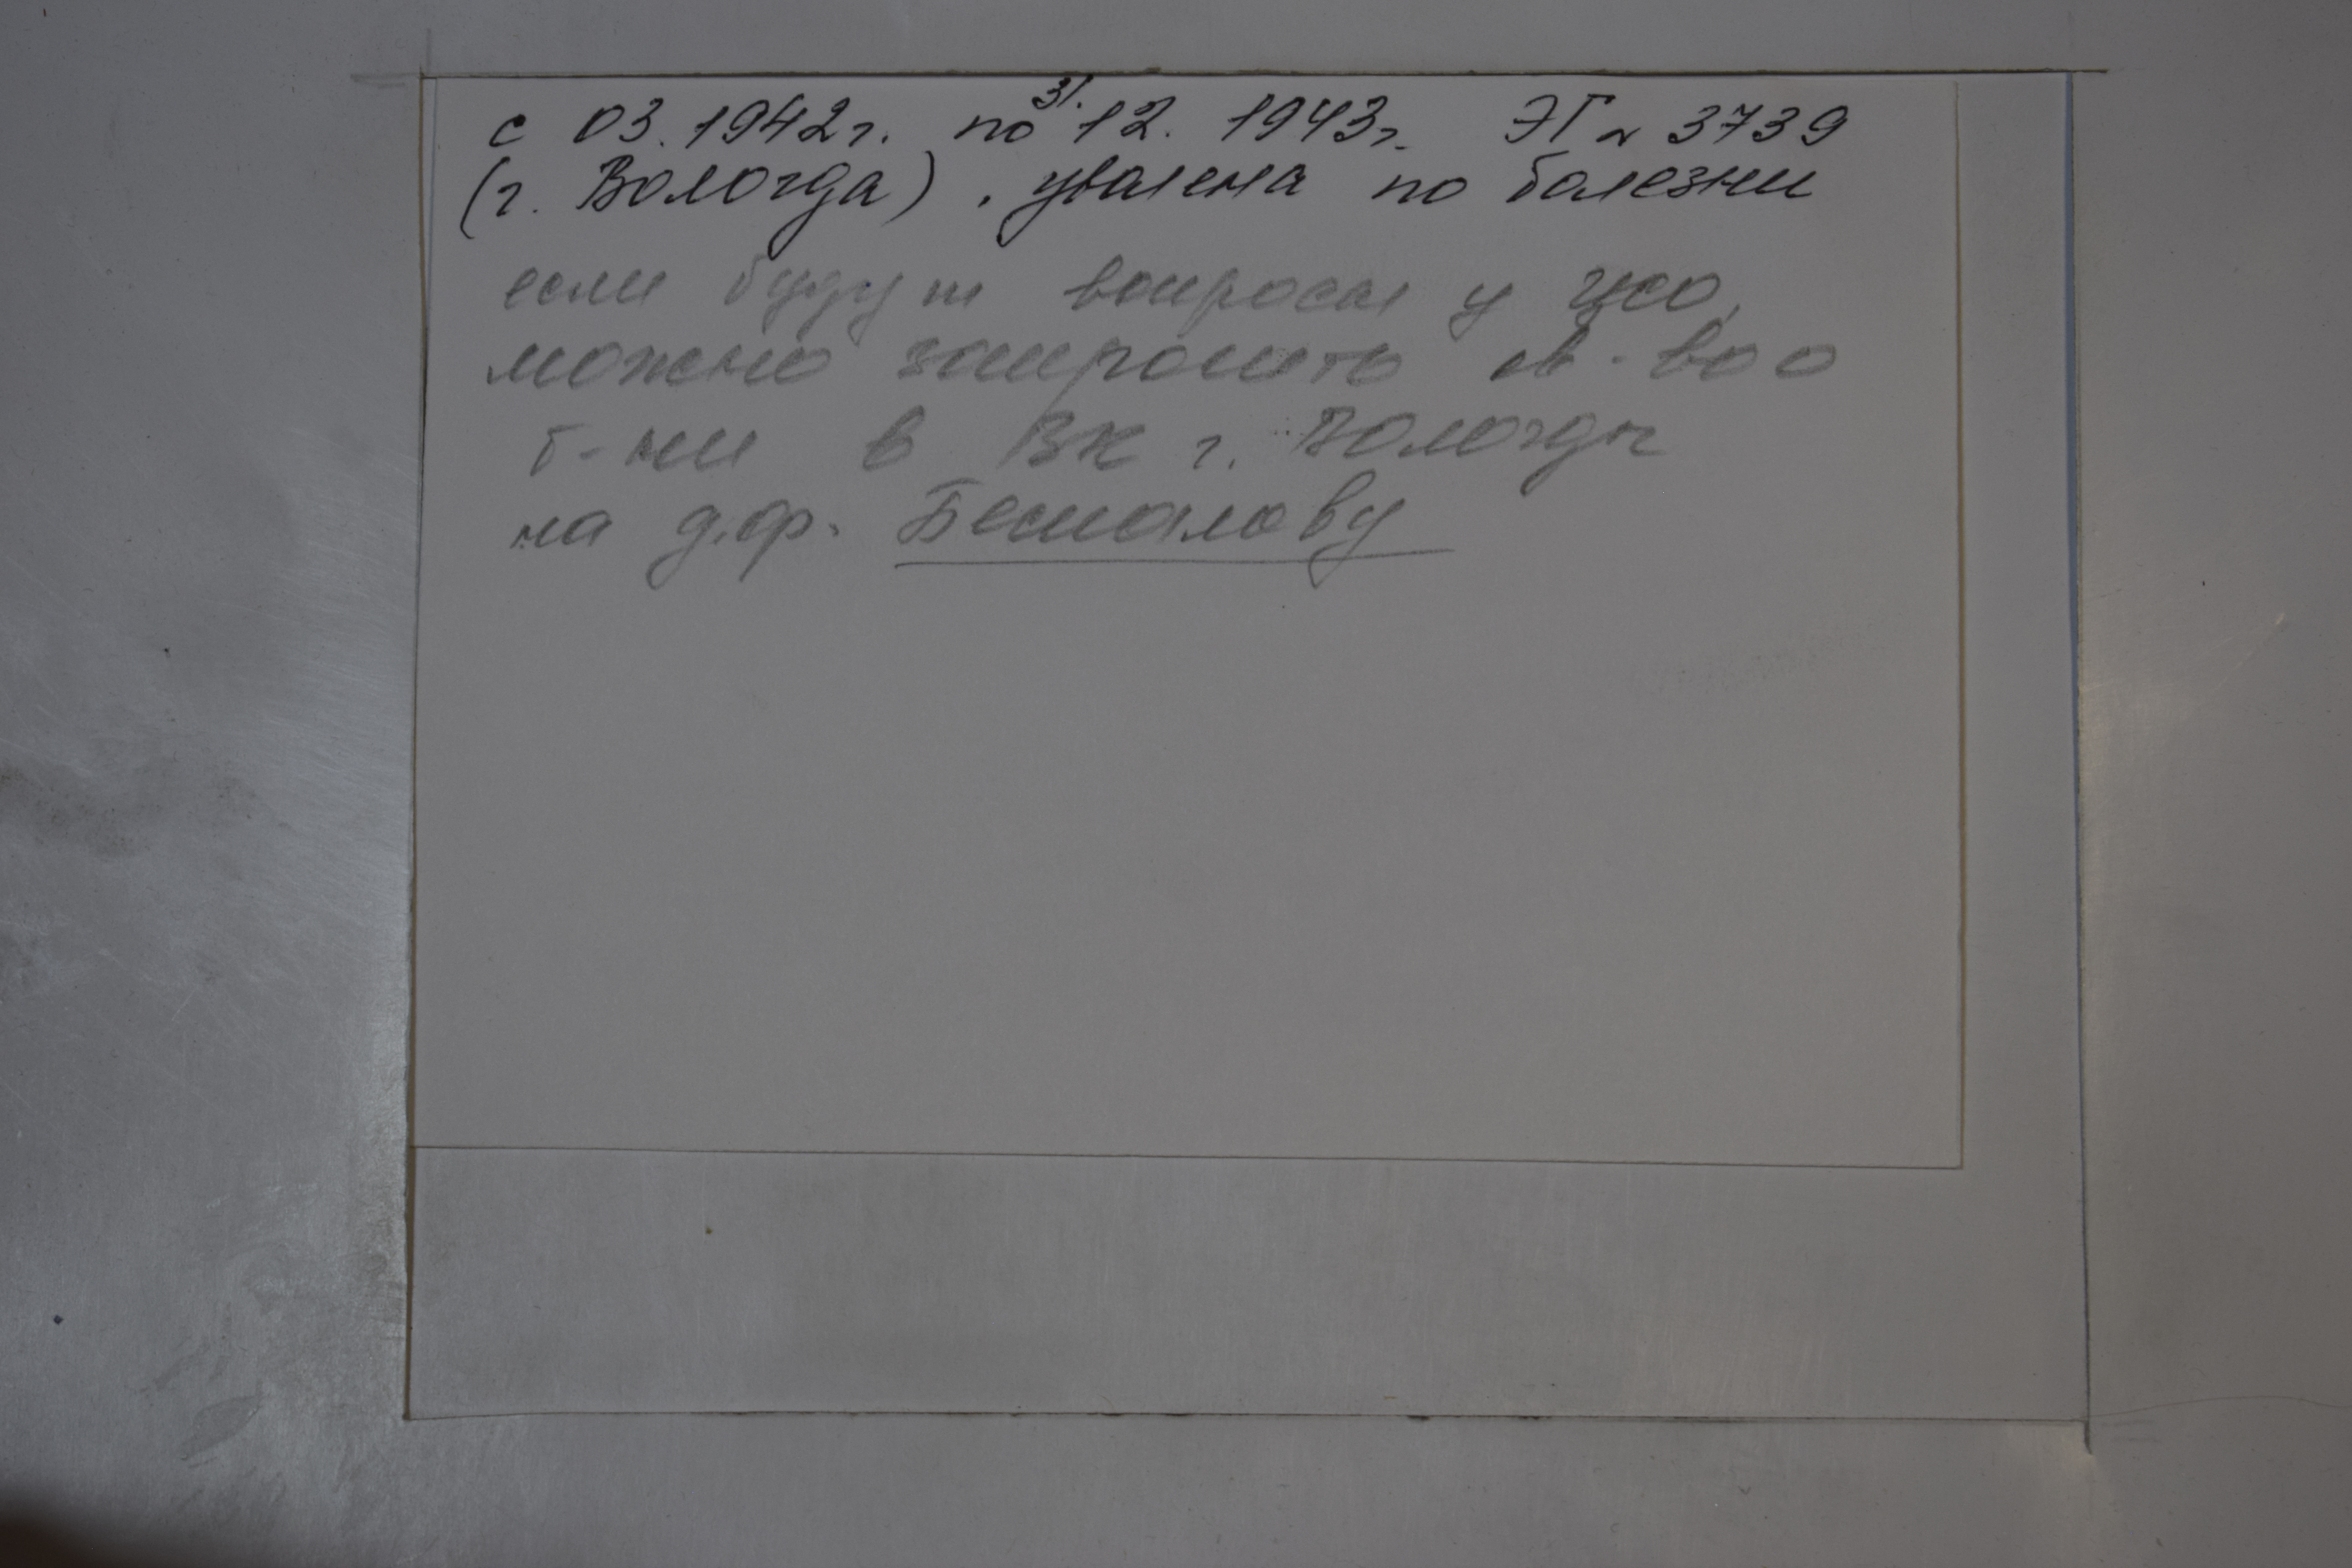 с 03.1942г. по 31.12.1943г. ЭГ№ 3739
(г. Вологда), уволена по болезни
если будут вопросы у ЦСО,
можно запросить св-во о
б-ни в ВК г. Вологды
на д.ф. Беспалову